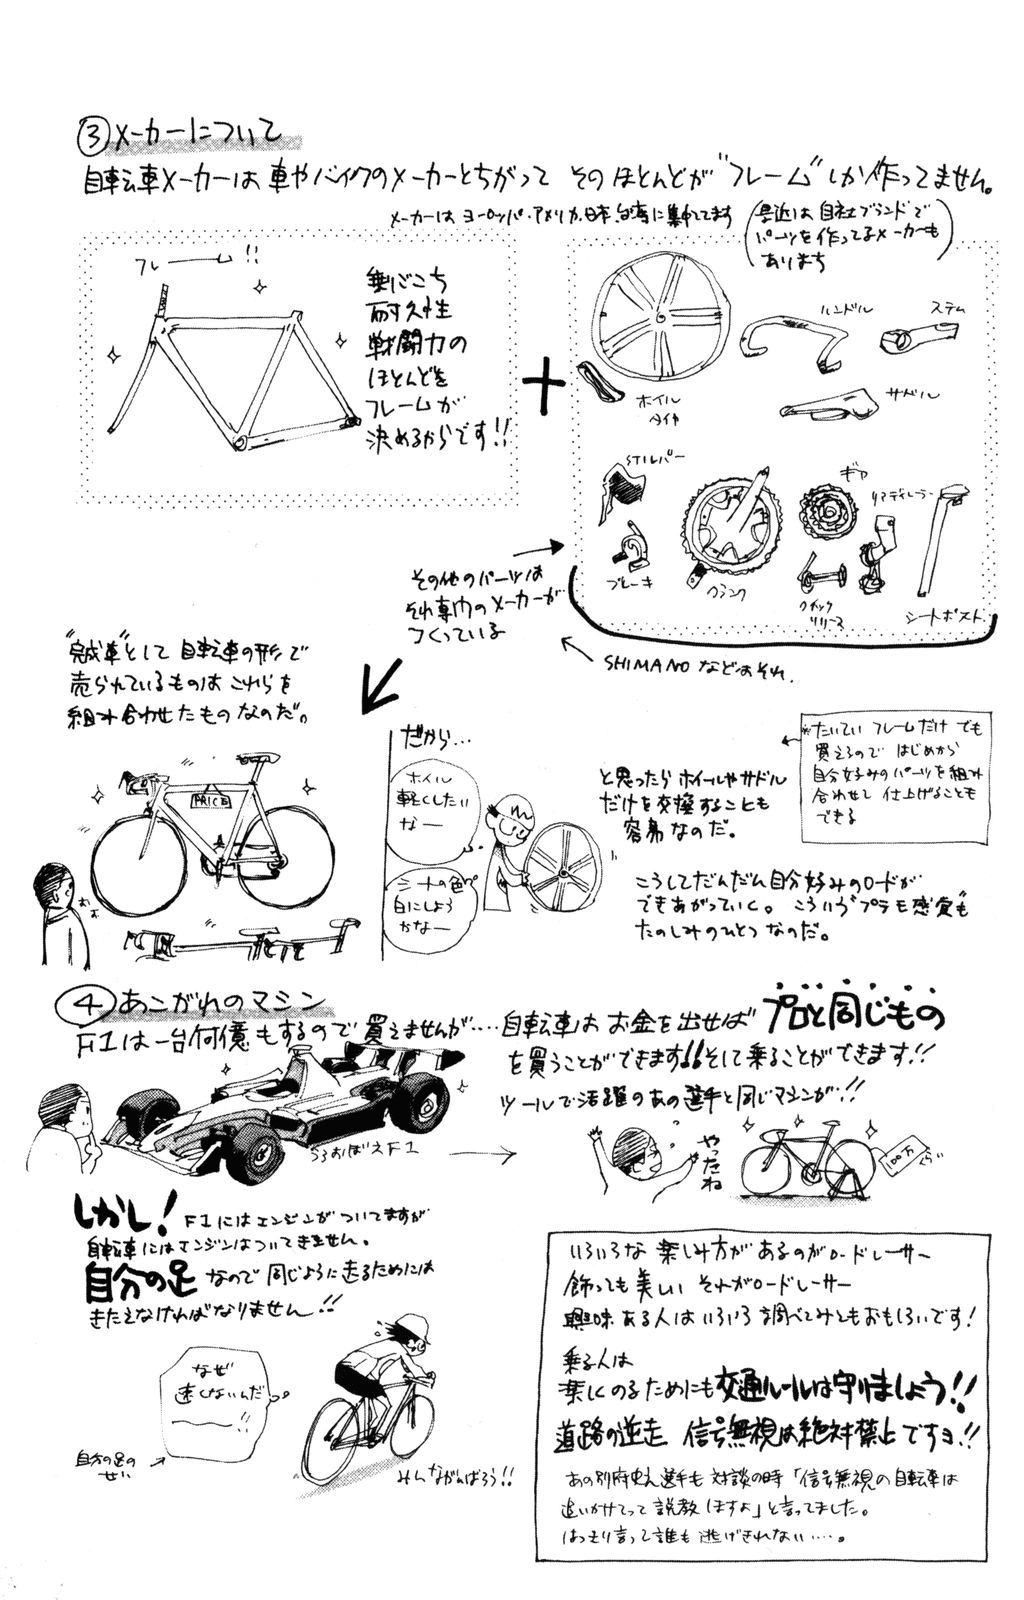 ③メーカーについて
自転車メーカーは 車やバイクのメーカーとちがって そのほとんどが"フレーム"しか作ってません。
メーカーは ヨーロッパ・アメリカ,日本,台湾に集中してます
(最近は 自社ブランドで
パーツを作ってるメーカーも
あります)
フレーーーム!!
乗りごこち
耐久性
戦闘力の
ほとんどを
フレームが
決めるからです!!
+
ハンドル
ステム
ホイル
タイヤ
サドル
STIレバー
ギヤ
リアディレーラー
ブレーキ
クランク
クイック
リリース
シートポスト
その他のパーツは
それ専門のメーカーが
つくっている
SHIMANO などはそれ.
"完成車"として 自転車の形で
売られているものは これらを
組み合わせたもの なのだ。
PRICE
だから…
ホイル
軽くしたい
なー
シートの色
白にしよう
かなー
と思ったら ホイールやサドル
だけを交換することも
容易なのだ。
※たいてい フレームだけ でも
買えるので はじめから
自分好みのパーツを組み
合わせて 仕上げることも
できる
こうしてだんだん自分好みのロードが
できあがっていく。 こういう"プラモ感覚"も
たのしみのひとつなのだ。
④あこがれのマシン
F1は一台何億もするので買えませんが‥‥自転車は お金を出せば プロと同じもの
を買うことができます!!そして乗ることができます!!
ツールで活躍のあの選手と同じマシンが!!
うろおぼえF1
やったね
100万
ぐらい
しかし! F1にはエンジンがついてますが
自転車にはエンジンはついてきません。
自分の足 なので 同じように走るためには
きたえなければなりません!!
なぜ
速くないんだ
ーー!!
自分の足の
せい
みんながんばろう!!
いろいろな 楽しみ方が あるのがロードレーサー
飾っても美しい それがロードレーサー
興味ある人は いろいろ調べてみてもおもしろいです!
乗る人は
楽しくのるためにも交通ルールは守りましょう!!
道路の逆走 信号無視は絶対禁止ですヨ!!
あの別府史之選手も 対談の時「信号無視の自転車は
追いかけてって 説教しますよ」と言ってました。
はっきり言って誰も 逃げきれない‥‥。